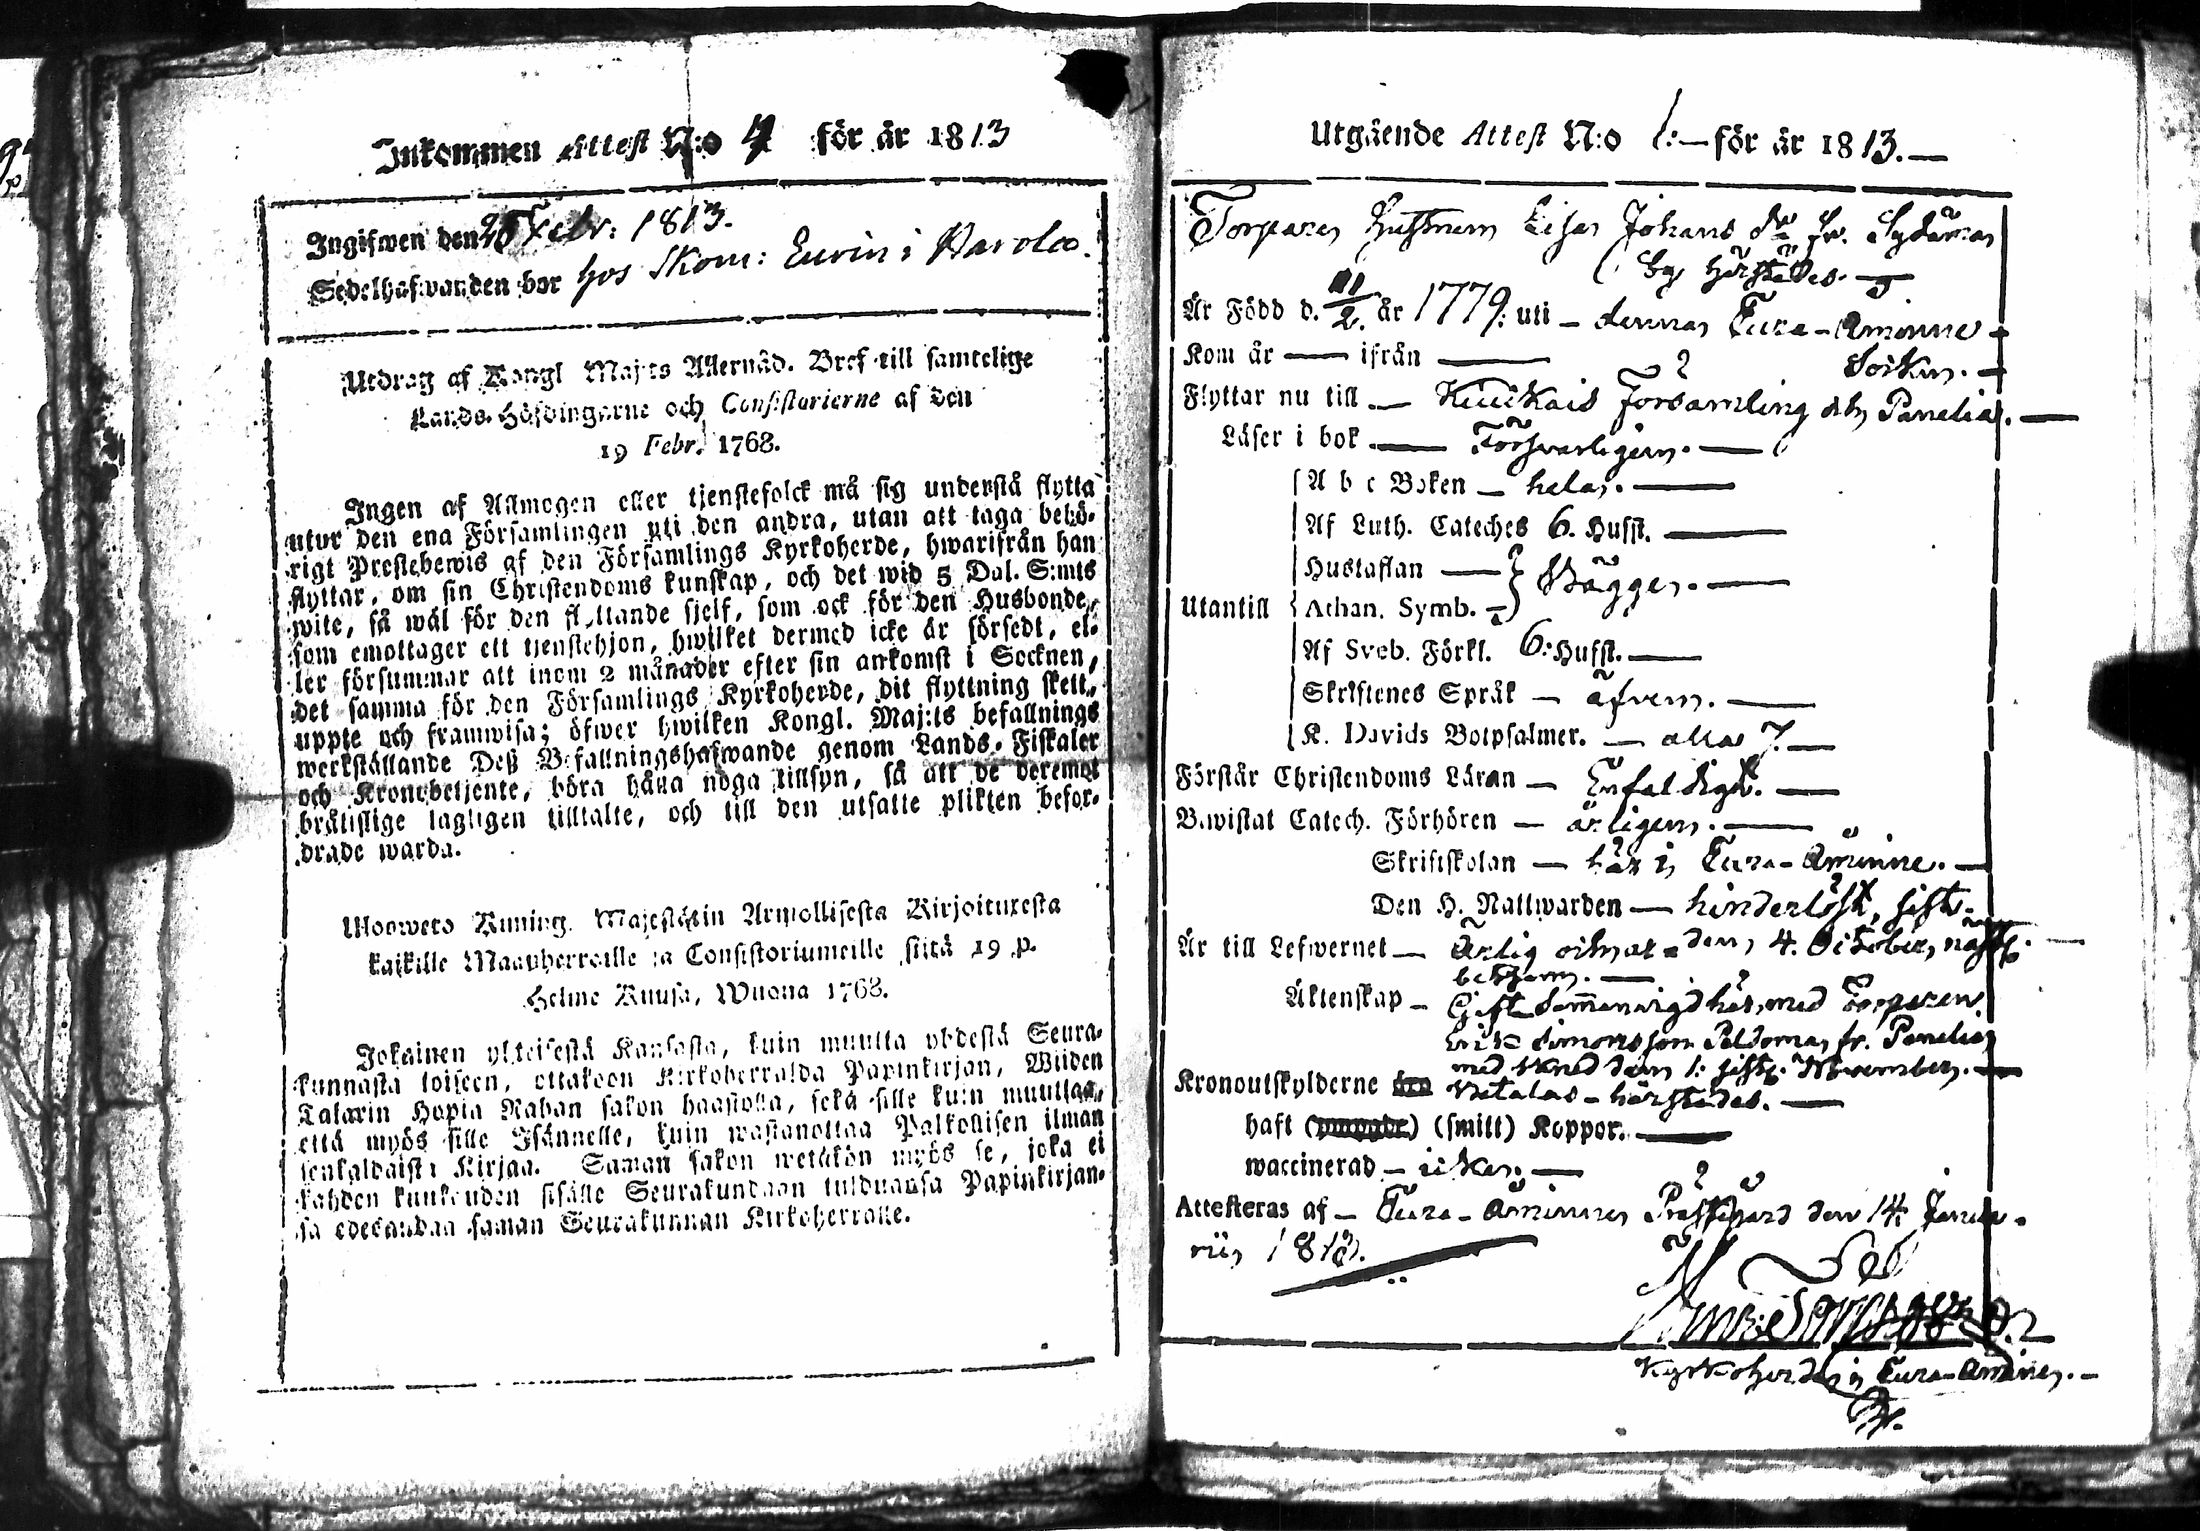 Inkommen Attest N:o 4 för år 1813
Ingifwen den 28 Febr: 1813.
Sedelhafwanden bor hos Skom: Eurin i Harola.
Utdrag af Kongl Maj:ts Allernåd. Bref till samtelige
Lands-Höfdingarne och Consistorierne af den
19 Febr. 1768.
Ingen af Allmogen eller tjenstefolck må sig understå flytta
utur den ena Församlingen uti den andra, utan att taga behö-
rigt Prestebewis af den Församlings Kyrkoherde, hwarifrån han
flyttar, om sin Christendoms kunskap, och det wid 5 Dal. S:mts
wite, så wäl för den flyttande sjelf, som ock för den Husbonde,
som emottager ett tjenstehjon, hwilket dermed icke är försedt, el-
ler försummar att inom 2 månader efter sin ankomst i Socknen,
det samma för den Församlings Kyrkoherde, dit flyttning skett,
uppte och framwisa; öfwer hwilken Kongl. Maj:ts befallnings
werkställande Deß Befallningshafwande genom Lands-Fiskaler
och Kronobetjente, böra hålla noga tillsyn, så att de deremot
bråtislige lagligen tilltalte, och till den utsatte plikten befor-
drade warda.
Uloosweto Kuning. Majestätin Armollisesta Kirjoituxesta
kaikille Maanherroille ja Consistoriumeille siitä 19 p.
Helme Kuusa, Wuona 1768.
Jokainen ylteisestä Kansasta, kuin muutta yhdestä Seura-
kunnasta toiseen, ottakoon Kirkoherralda Papinkirjan, Wiiden
Talarin Hopia Rahan sakon haastolla, sekä sille kuin muuttaa,
että myös sille Isännelle, kuin wastanottaa Palkollisen ilman
senkaldaista Kirjaa. Saman sakon wetäkön myös se, joka ei
kahden kuukauden sisälle Seurakundaan tulduansa Papinkirjan-
sa edesandaa saman Seurakunnan Kirkoherralle.
Utgående Attest N:o 1:— för år 1813.—
Torparen Hustrun Lisa Johans dr fr. Sydänma
by härstädes.
Är Född d. 11/2. år 1779: uti — denna Eura-Åminne
Socken.
Kom år — ifrån —
Flyttar nu till — Kiukais Församling och Panelia.
Läser i bok — Försvarligen.
A b c Boken — hela.
Af Luth. Cateches 6. Hufst.
Hustaflan —
Bägge.
Utantill Athan. Symb. —
Af Sveb. Förkl. 6: Hufst.
Skriftenes Språk — äfven.
K. Davids Botpsalmer. — alla 7.
Förstår Christendoms Läran — Enfaldigt.
Bewistat Catech. Förhören — årligen.
Skriftskolan — här i Eura-Åminne.
Den H. Nattwarden — hinderlöst, sist-
Är till Lefwernet — Ärlig och den 4. October näst
beskem.
Äktenskap — Gift Sammanvigd här, med Torparen
Erik Simonsson Peldoma fr. Panelia
med sked den 1: sistl. November.
Kronoutskylderne betalas härstädes.
haft (smitt) Koppor.
waccinerad — icke.
Attesteras af — Eura-Åminne Prästgård den 14 Janua-
rii 1813.
Kyrkoherde i Eura-Åminne.